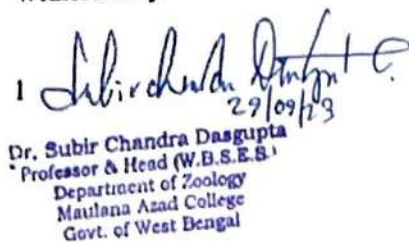 1 Subir Chandra Dasgupta
29/09/23
Dr. Subir Chandra Dasgupta
Professor & Head (W.B.S.E.S.)
Department of Zoology
Maulana Azad College
Govt. of West Bengal